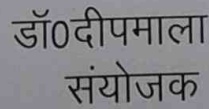 डॉ0दीपमाला
संयोजक